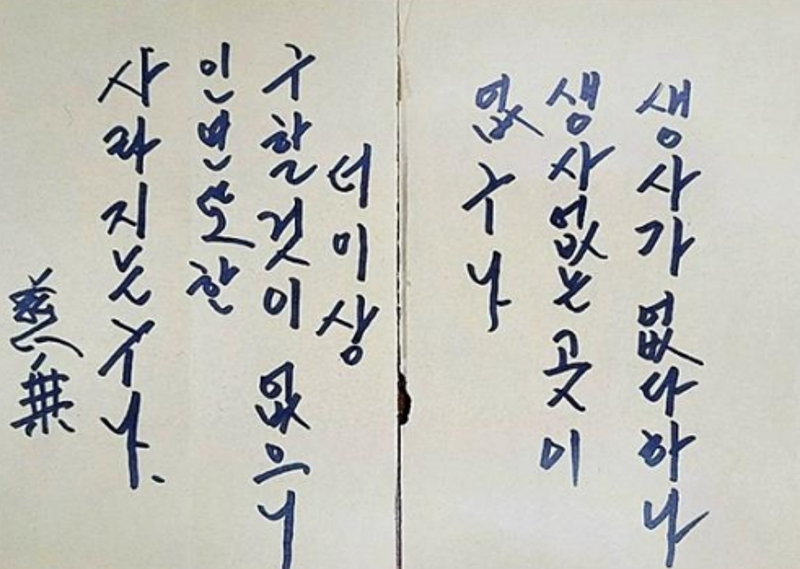 생사가 없다하나
생사없는 곳이
없구나
더이상
구할것이 없으니
인연 또한
사라지는구나.
慈無